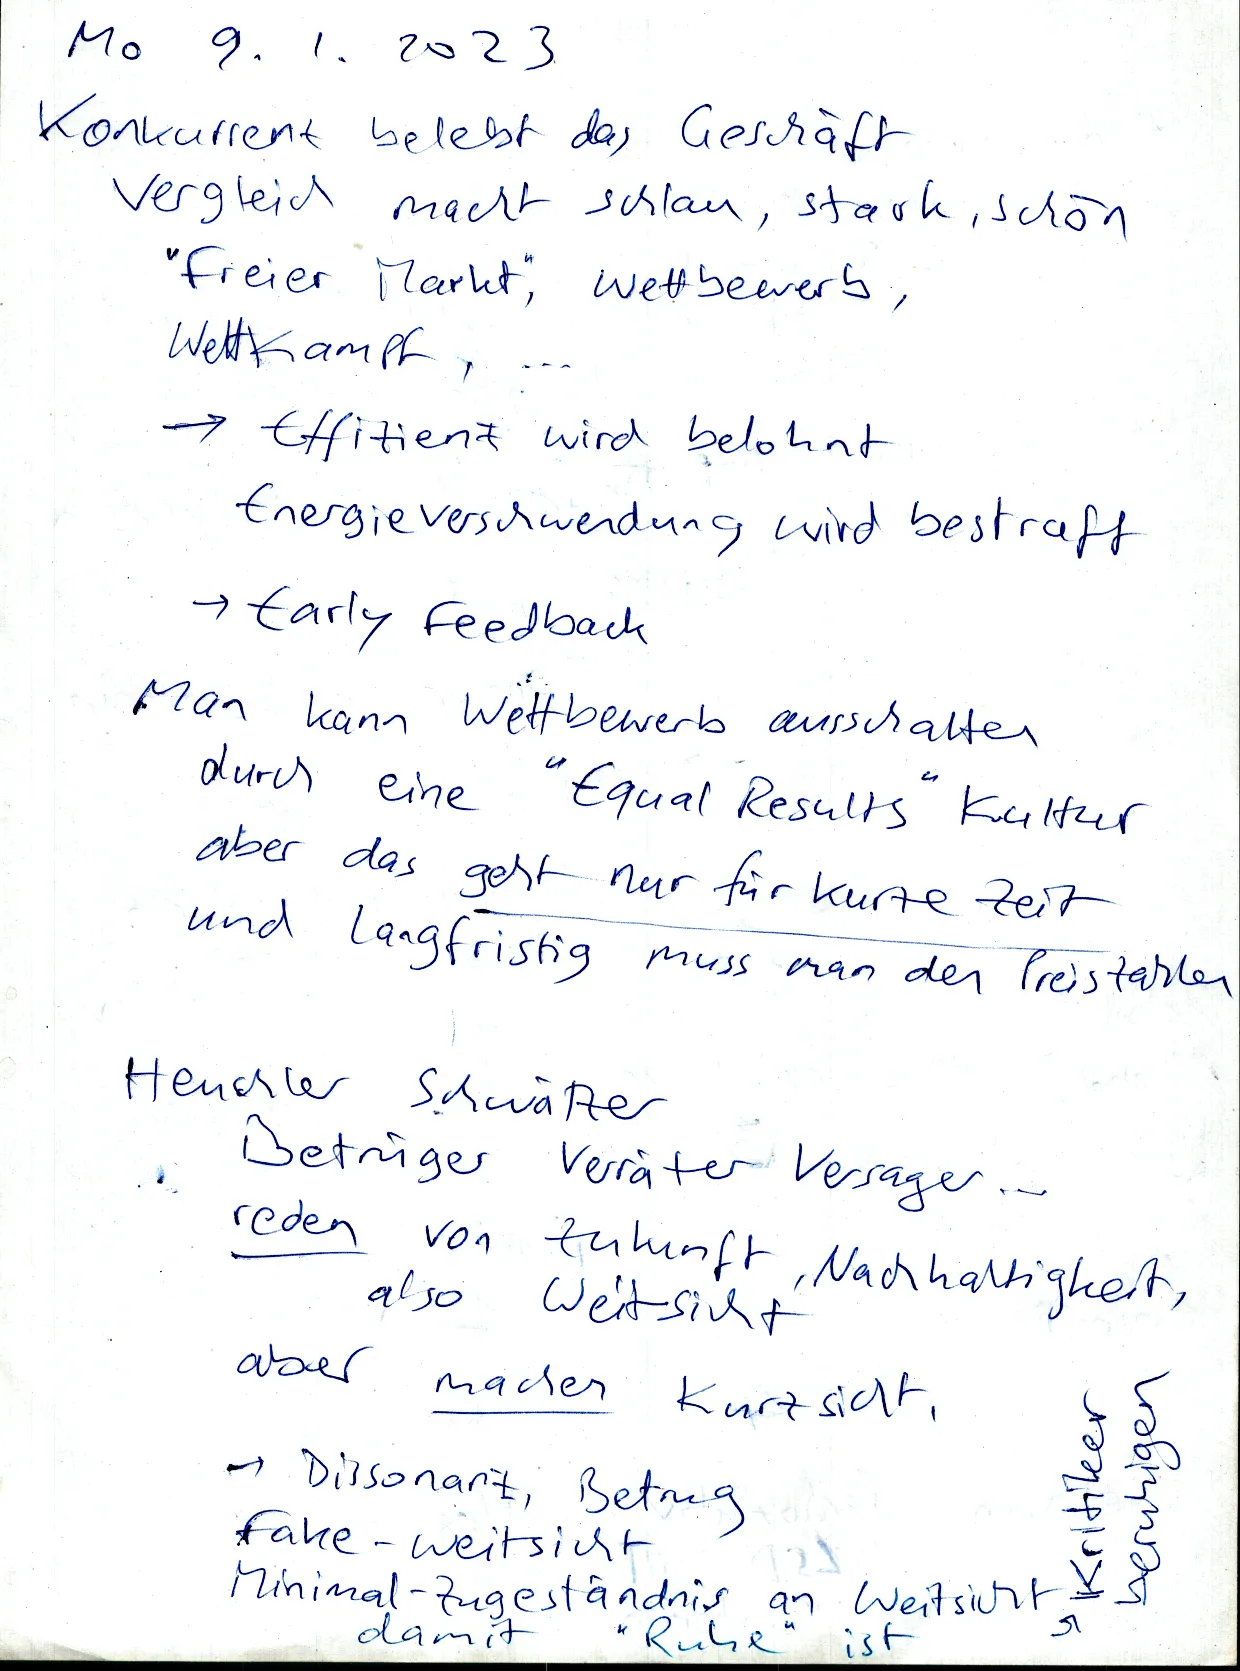 Mo 9. 1. 2023
Konkurrenz belebt das Geschäft
Vergleich macht schlau, stark, schön
"Freier Markt", Wettbewerb,
Wettkampf, ...
→ Effizienz wird belohnt
Energieverschwendung wird bestraft
→ Early Feedback
Man kann Wettbewerb ausschalten
durch eine "Equal Results" Kultur
aber das geht nur für kurze Zeit
und langfristig muss man den Preis zahlen
Heuchler Schwätzer
Betrüger Verräter Versager...
reden von Zukunft, Nachhaltigkeit,
also Weitsicht
aber machen Kurzsicht,
→ Dissonanz, Betrug
Fake-Weitsicht
Minimal-Zugeständnis an Weitsicht
damit "Ruhe" ist
→ Kritiker
beruhigen